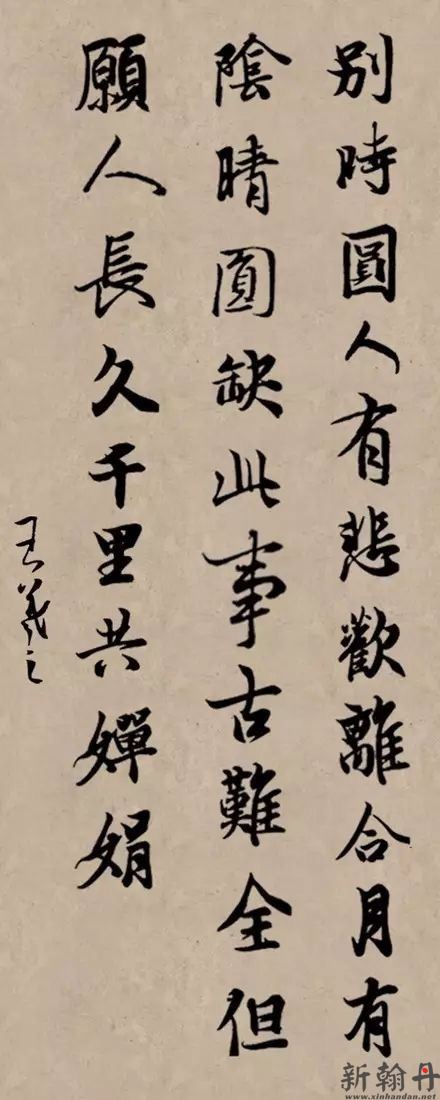 别時圓人有悲歡離合月有
陰晴圓缺此事古難全但
願人長久千里共嬋娟
王羲之
新翰丹
www.xinhandan.net